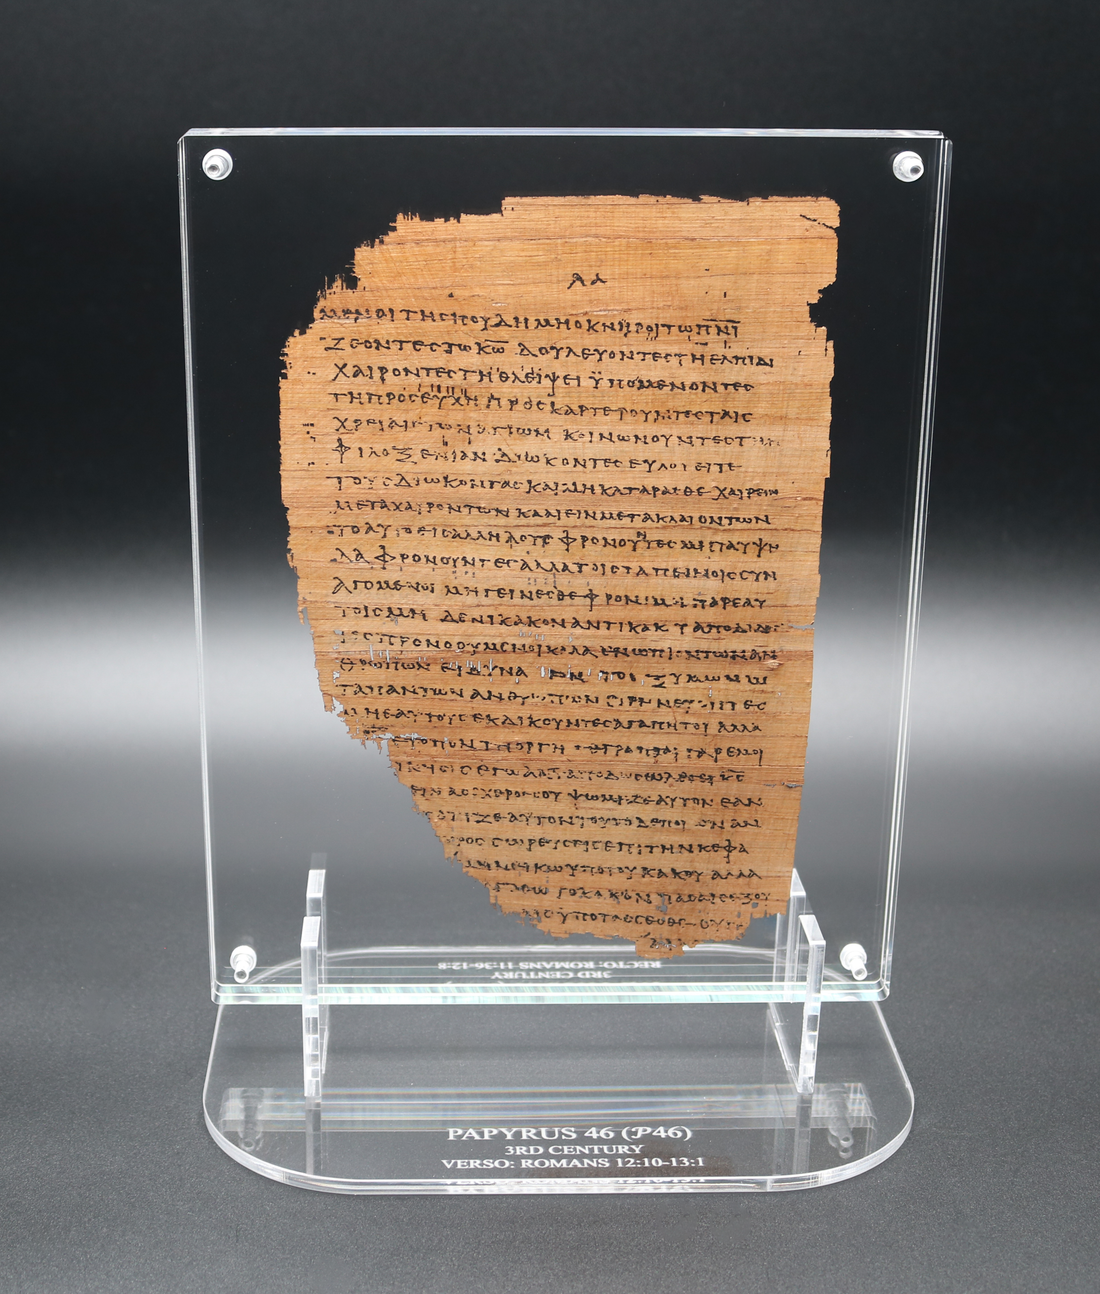 ΜΕΝΟΙ ΤΗ ϹΠΟΥΔΗ ΜΗ ΟΚΝΗΡΟΙ ΤΩ Π̅Ν̅Ι̅
ΖΕΟΝΤΕϹ ΤΩ Κ̅Ω̅ ΔΟΥΛΕΥΟΝΤΕϹ ΤΗ ΕΛΠΙΔΙ
ΧΑΙΡΟΝΤΕϹ ΤΗ ΘΛΕΙΨΕΙ ΫΠΟΜΕΝΟΝΤΕϹ
ΤΗ ΠΡΟϹΕΥΧΗ ΠΡΟϹΚΑΡΤΕΡΟΥΝΤΕϹ ΤΑΙϹ
ΧΡΕΙΑΙϹ ΤΩΝ ΑΓΙΩΝ ΚΟΙΝΩΝΟΥΝΤΕϹ
ΦΙΛΟΞΕΝΙΑΝ ΔΙΩΚΟΝΤΕϹ ΕΥΛΟΓΕΙΤΕ
ΤΟΥϹ ΔΙΩΚΟΝΤΑϹ ΚΑΙ ΜΗ ΚΑΤΑΡΑϹΘΕ ΧΑΙΡΕΙΝ
ΜΕΤΑ ΧΑΙΡΟΝΤΩΝ ΚΛΑΙΕΙΝ ΜΕΤΑ ΚΛΑΙΟΝΤΩΝ
ΤΟ ΑΥΤΟ ΕΙϹ ΑΛΛΗΛΟΥϹ ΦΡΟΝΟΥΝΤΕϹ ΜΗ ΤΑ ΥΨΗ
ΛΑ ΦΡΟΝΟΥΝΤΕϹ ΑΛΛΑ ΤΟΙϹ ΤΑΠΕΙΝΟΙϹ ϹΥΝ
ΑΓΟΜΕΝΟΙ ΜΗ ΓΕΙΝΕϹΘΕ ΦΡΟΝΙΜΟΙ ΠΑΡ ΕΑΥ
ΤΟΙϹ ΜΗΔΕΝΙ ΚΑΚΟΝ ΑΝΤΙ ΚΑΚΟΥ
ΠΡΟΝΟΟΥΜΕΝΟΙ ΚΑΛΑ ΕΝΩΠΙΟΝ ΤΩΝ ΑΝ
ΘΡΩΠΩΝ ΕΙ ΔΥΝΑ ΥΜΩΝ
ΤΑ ΠΑΝΤΩΝ ΑΝΘΡΩΠΩΝ
ΜΗ ΕΑΥΤΟΥϹ ΕΚΔΙΚΟΥΝΤΕϹ ΑΓΑΠΗΤΟΙ ΑΛΛΑ
ΤΟΠΟΝ ΤΗ ΟΡΓΗ ΓΕΓΡΑΠΤΑΙ ΓΑΡ ΕΜΟΙ
ΕΓΩ ΛΕΓΕΙ Κ̅Ϲ̅
ϹΟΥ ΨΩΜΙΖΕ ΑΥΤΟΝ ΕΑΝ
ΑΥΤΟΝ ΤΟΥΤΟ ΔΕ
ϹΩΡΕΥϹΕΙϹ ΕΠΙ ΤΗΝ ΚΕΦΑ
ΥΠΟ ΤΟΥ ΚΑΚΟΥ ΑΛΛΑ
ΤΟ ΚΑΚΟΝ ΠΑϹΑΙϹ ΕΞΟΥ
ΥΠΟΤΑϹϹΕϹΘΕ
RECTO: ROMANS 11:36-12:8
3RD CENTURY
PAPYRUS 46 (𝔓46)
3RD CENTURY
VERSO: ROMANS 12:10-13:1